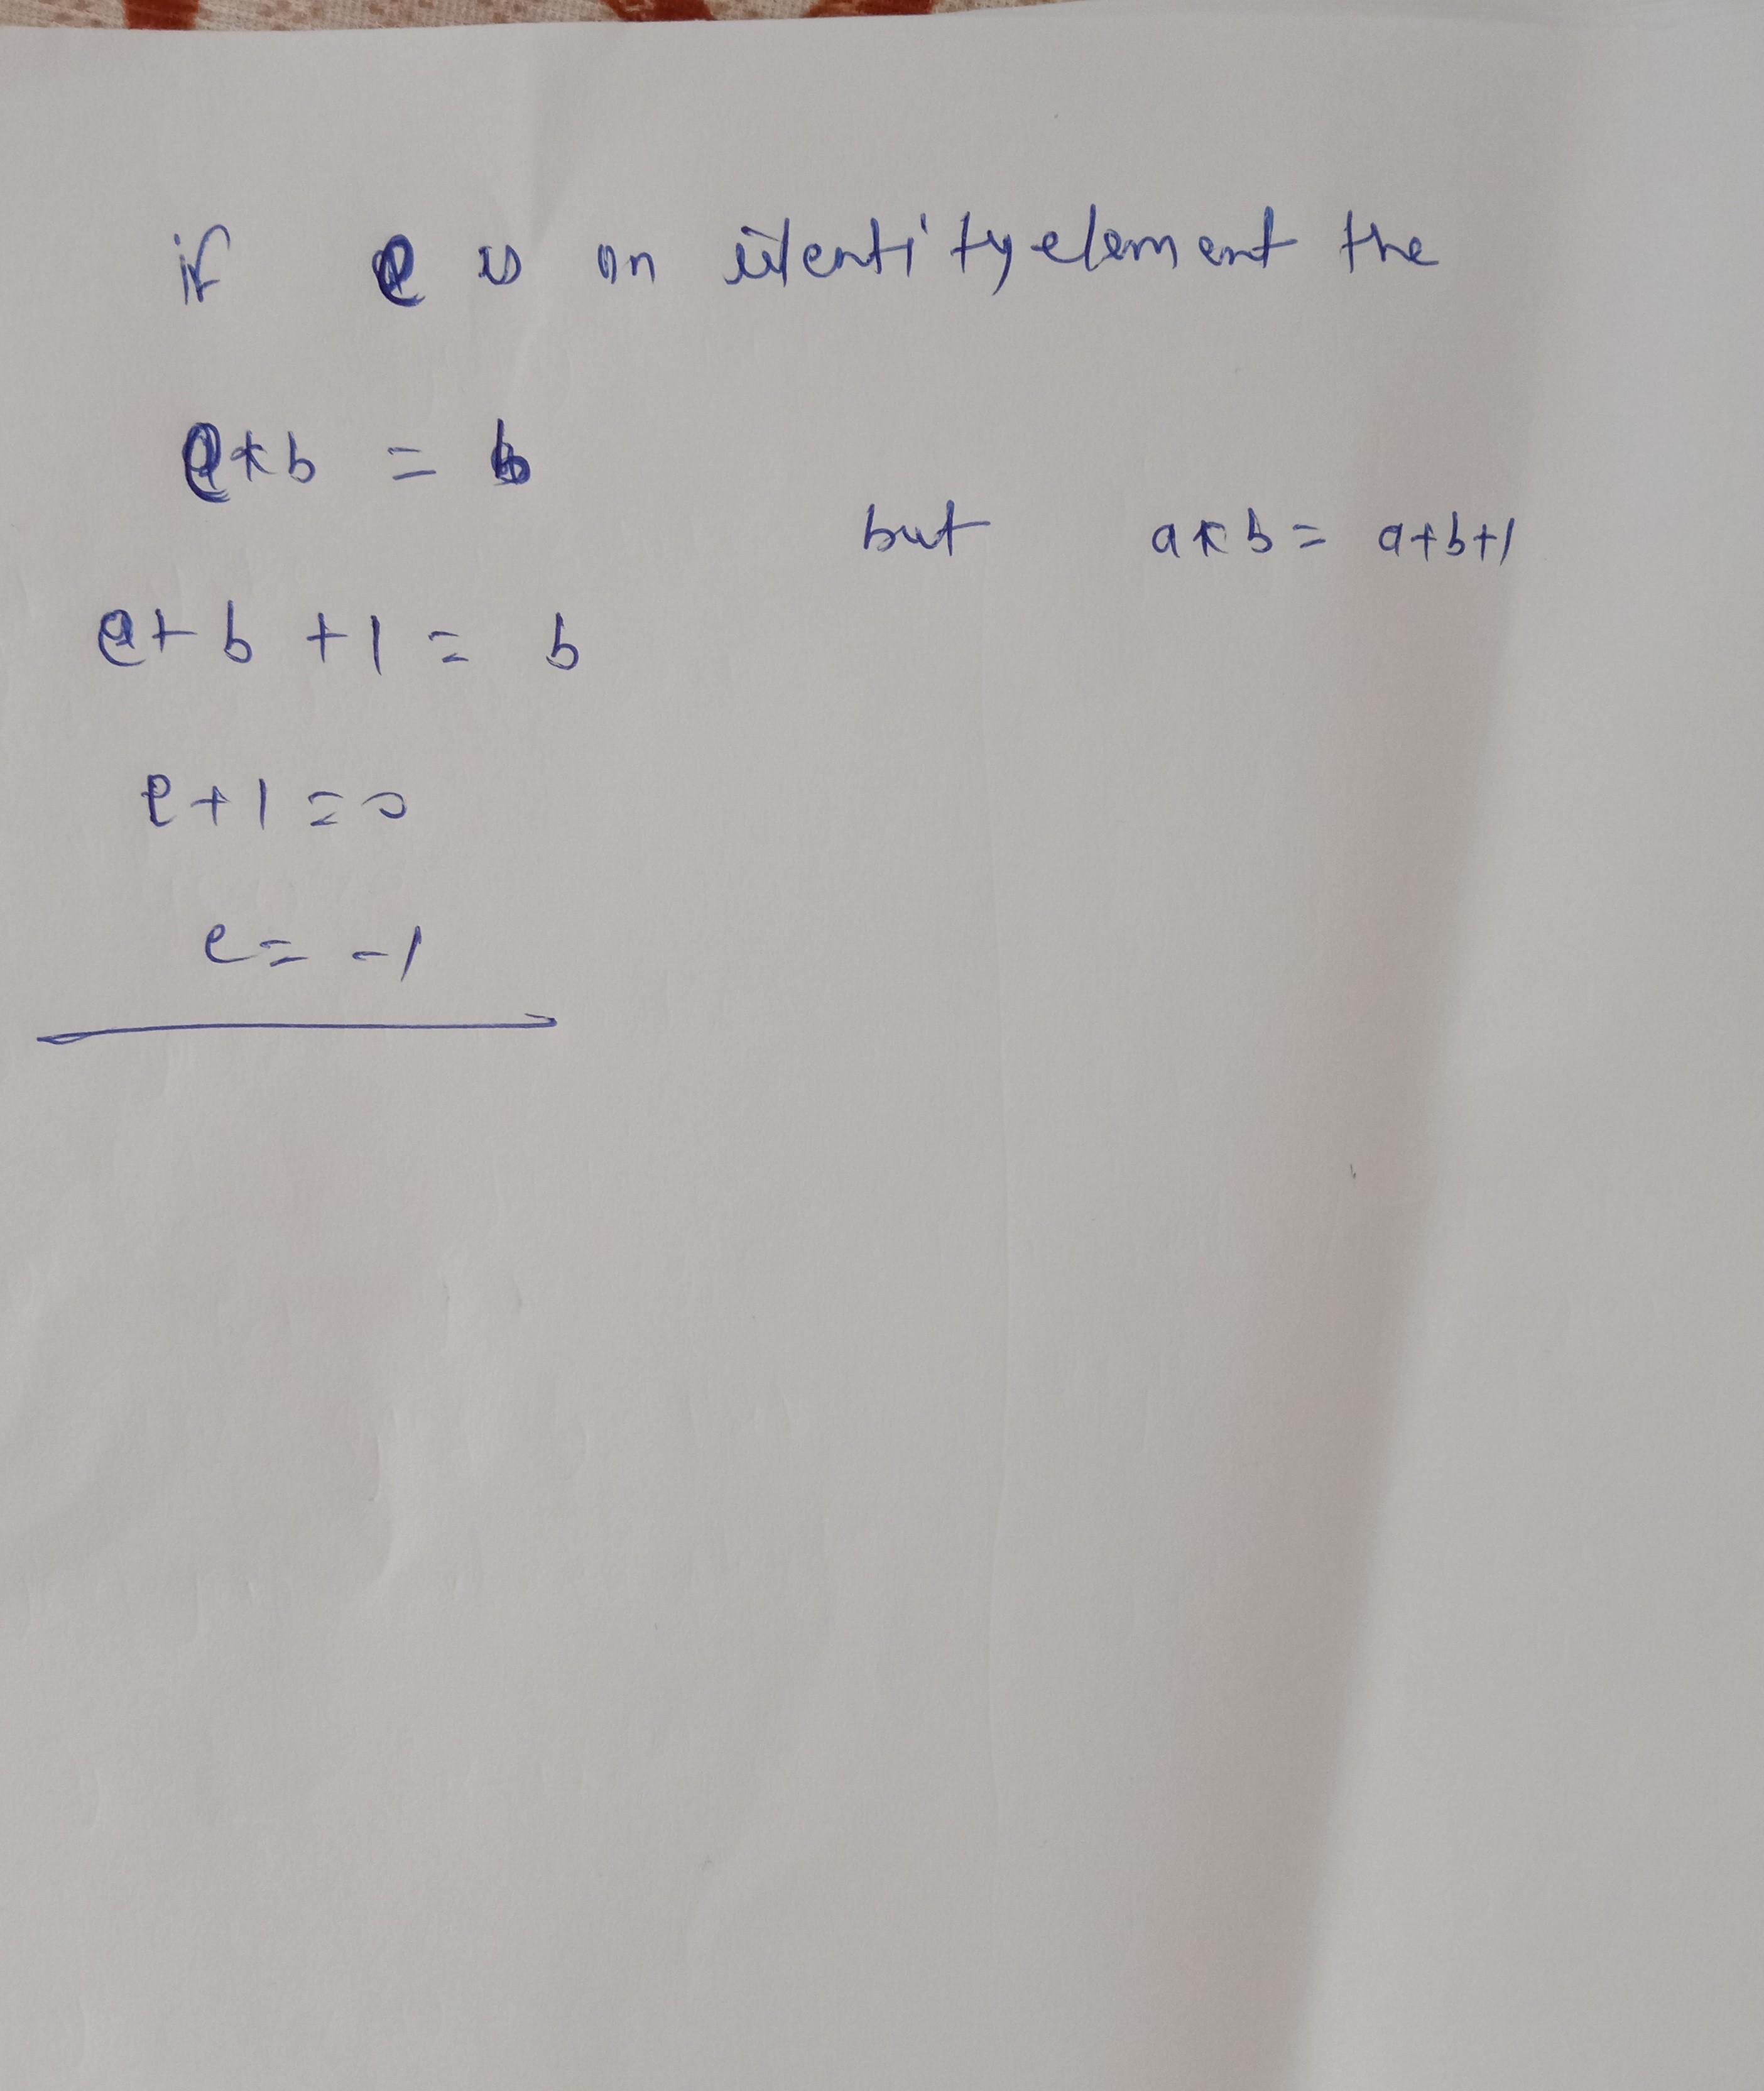 if e is an identity element the
e*b = b
but a*b = a+b+1
e+b+1 = b
e+1=0
e=-1